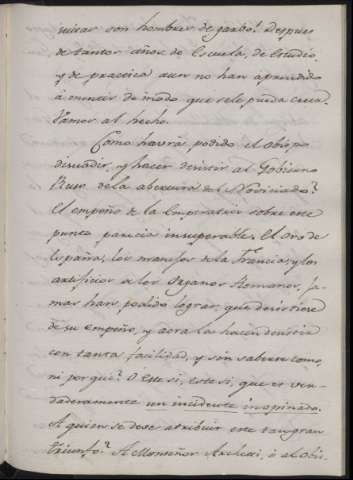 nistas son hombres de garbo! Despues
de tantos años de Escuela, de Estudio,
y de practica aun no han aprendido
à mentir de modo que se les pueda creer.
Vamos al hecho.
Como havrà podido el Obispo
disuadir, y hacer desistir al Gobierno
Ruso de la abertura del Noviciado?
El empeño de la Emperatriz sobre este
punto parecia insuperable. El oro de
España, los manejos de la Francia, y los
artificios de los Organos Romanos, ja-
mas han podido lograr, que desistiese
de su empeño, y aora la hacen desistir
con tanta facilidad, y sin saberse como,
ni por què? O este si, este si, que es ver-
daderamente un incidente inopinado.
A quien se debe atribuir este tan gran
triunfo? A Monseñor Archetti, ò al Obis-